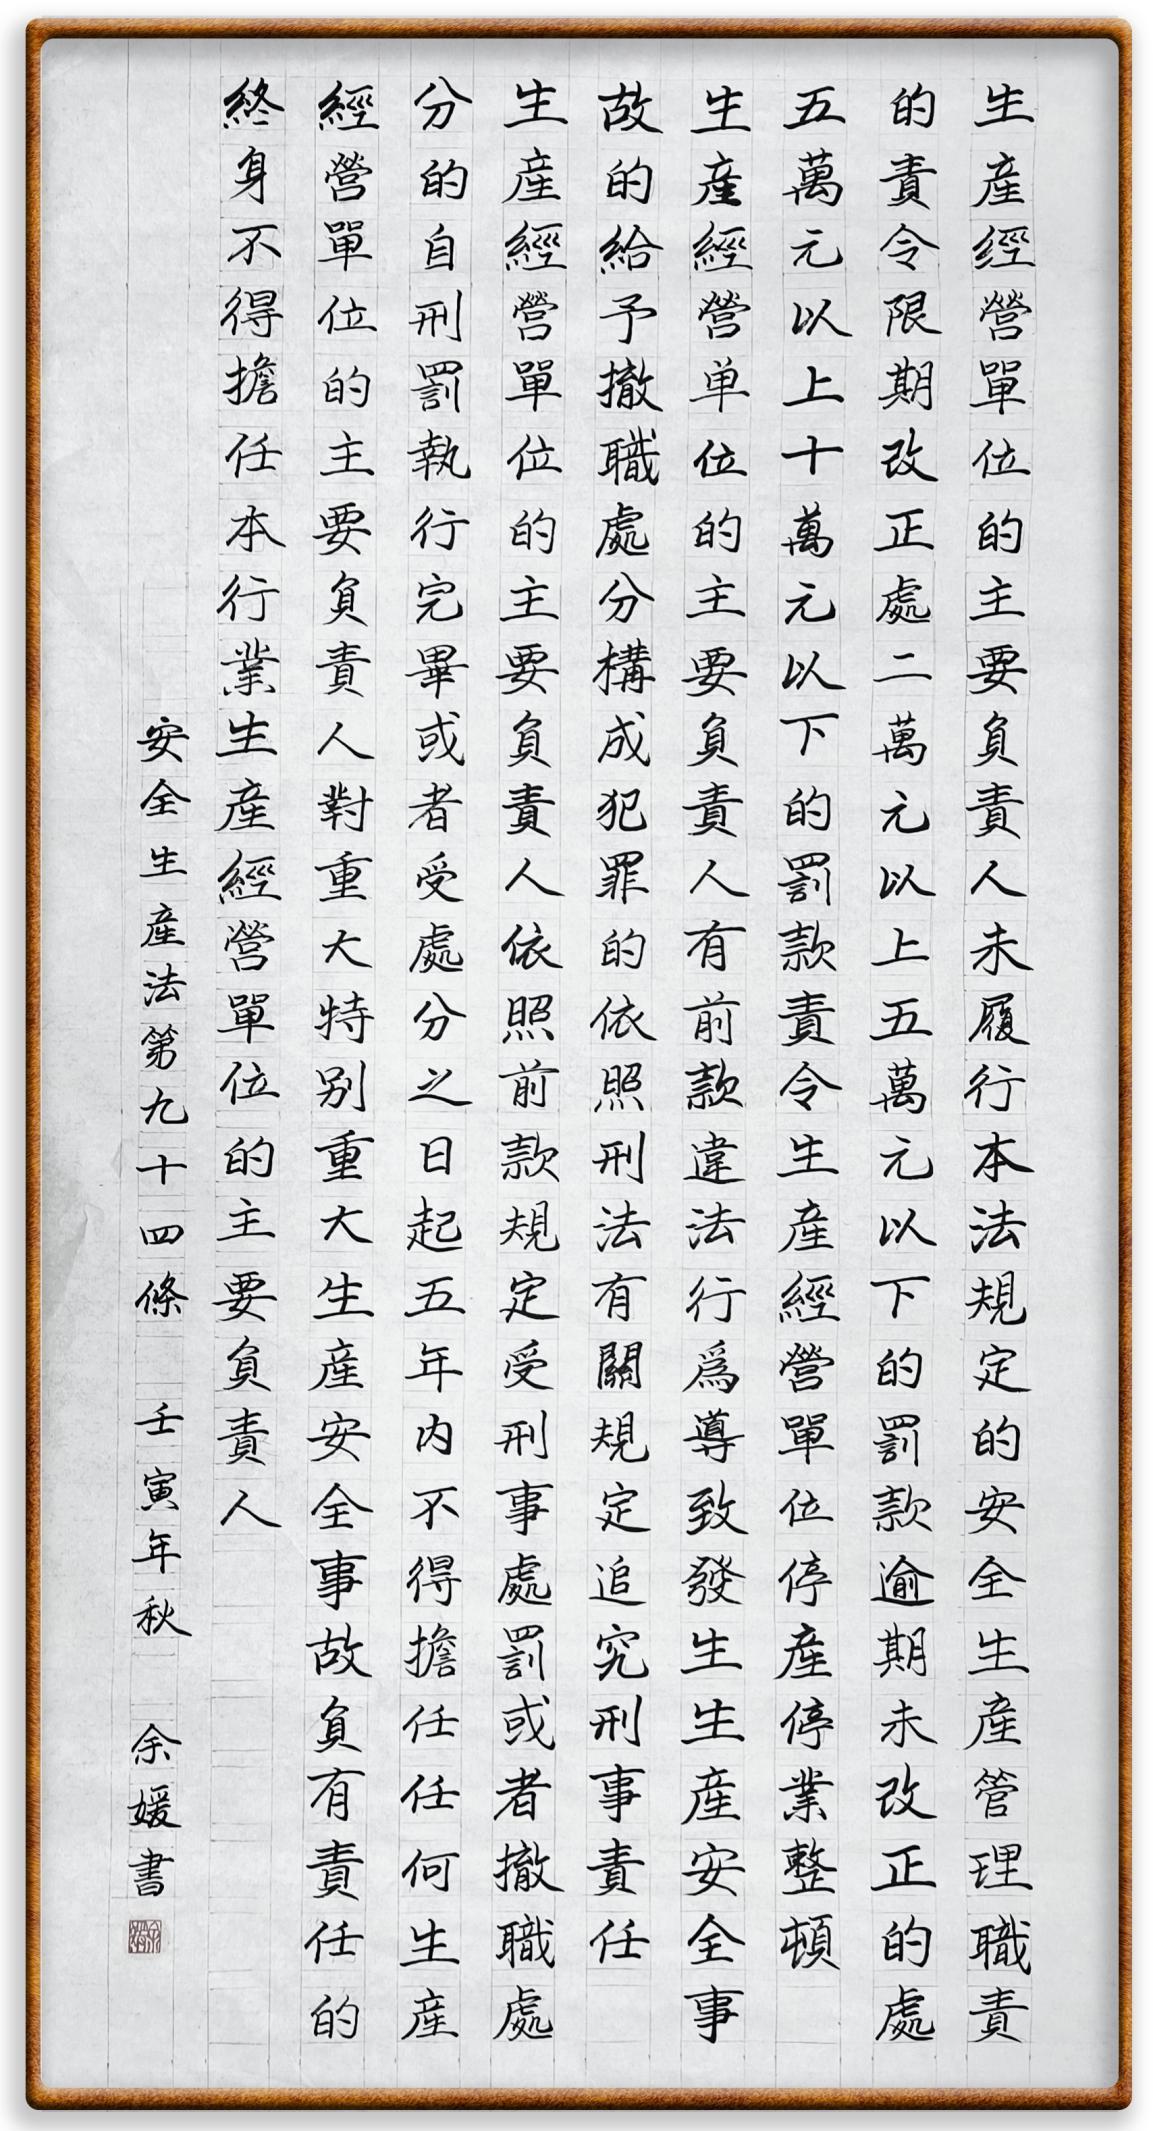 生產经營單位的主要負責人未履行本法規定的安全生產管理職責
的責令限期改正處二萬元以上五萬元以下的罰款逾期未改正的處
五萬元以上十萬元以下的罰款責令生產經營單位停產停業整頓
生產經營单位的主要負責人有前款違法行為導致發生生產安全事
故的給予撤職處分構成犯罪的依照刑法有關規定追究刑事責任
生產經營單位的主要負責人依照前款規定受刑事處罰或者撤職處
分的自刑罰執行完畢或者受處分之日起五年内不得擔任任何生產
經營單位的主要負責人對重大特别重大生產安全事故負有責任的
終身不得擔任本行業生產經營單位的主要負責人
安全生產法第九十四條 壬寅年秋 余媛書